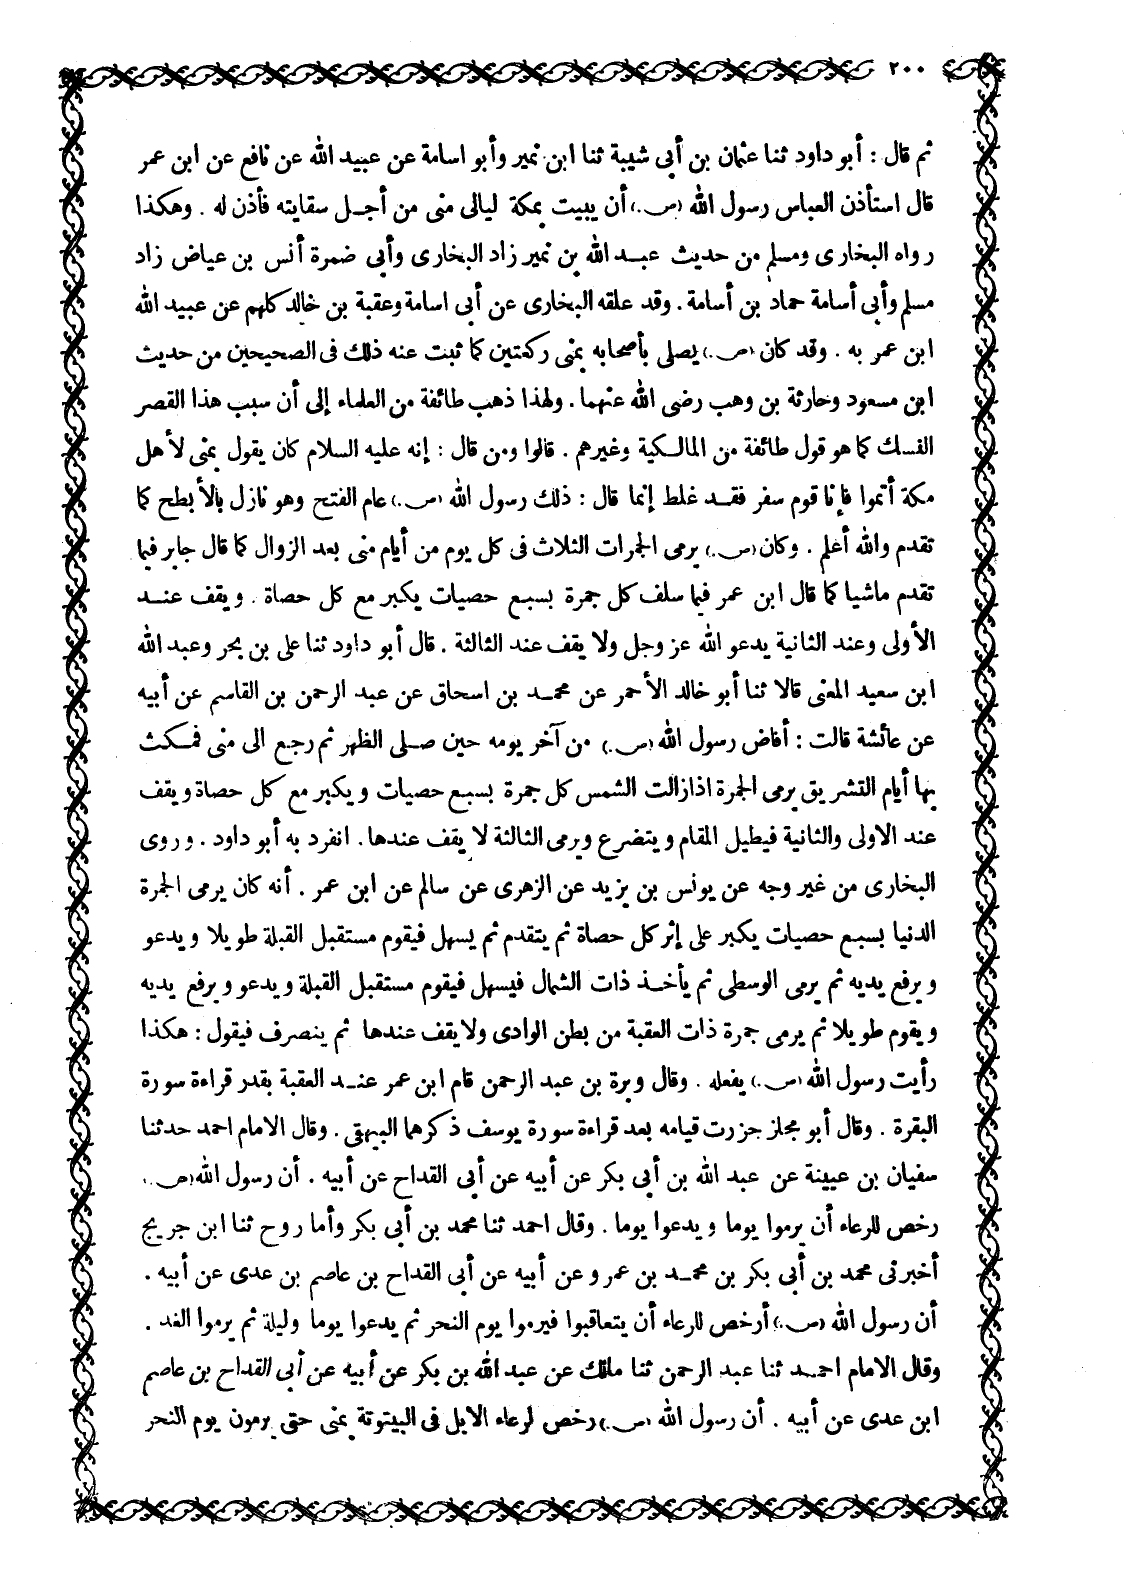 ٢٠٠
ثم قال : أبو داود ثنا عثمان بن أبى شيبة ثنا ابن نمير وأبو اسامة عن عبيد الله عن نافع عن ابن عمر
قال استأذن العباس رسول الله (ص.) أن يبيت بمكة ليالى منى من أجل سقايته فأذن له . وهكذا
رواه البخارى ومسلم من حديث عبد الله بن نمير زاد البخارى وأبى ضمرة أنس بن عياض زاد
مسلم وأبى أسامة حماد بن أسامة . وقد علقه البخارى عن أبى اسامة وعقبة بن خالد كلهم عن عبيد الله
ابن عمر به . وقد كان (ص.) يصلى بأصحابه بمنى ركعتين كما ثبت عنه ذلك فى الصحيحين من حديث
ابن مسعود وحارثة بن وهب رضى الله عنهما . ولهذا ذهب طائفة من العلماء إلى أن سبب هذا القصر
الفسك كما هو قول طائفة من المالكية وغيرهم . قالوا ومن قال : إنه عليه السلام كان يقول بمنى لأهل
مكة أتموا فإنا قوم سفر فقد غلط إنما قال : ذلك رسول الله (ص.) عام الفتح وهو نازل بالأبطح كما
تقدم والله أعلم . وكان (ص.) يرمى الجمرات الثلاث فى كل يوم من أيام منى بعد الزوال كما قال جابر فيما
تقدم ماشيا كما قال ابن عمر فيما سلف كل جمرة بسبع حصيات يكبر مع كل حصاة . ويقف عند
الأولى وعند الثانية يدعو الله عز وجل ولا يقف عند الثالثة . قال أبو داود ثنا على بن بحر وعبد الله
ابن سعيد المعنى قالا ثنا أبو خالد الأحمر عن محمد بن اسحاق عن عبد الرحمن بن القاسم عن أبيه
عن عائشة قالت : أفاض رسول الله (ص.) من آخر يومه حين صلى الظهر ثم رجع الى منى فمكث
بها أيام التشريق يرمى الجمرة اذا زالت الشمس كل جمرة بسبع حصيات ويكبر مع كل حصاة ويقف
عند الاولى والثانية فيطيل المقام ويتضرع ويرمى الثالثة لا يقف عندها . انفرد به أبو داود . وروى
البخارى من غير وجه عن يونس بن يزيد عن الزهرى عن سالم عن ابن عمر . أنه كان يرمى الجمرة
الدنيا بسبع حصيات يكبر على إثر كل حصاة ثم يتقدم ثم يسهل فيقوم مستقبل القبلة طويلا ويدعو
ويرفع يديه ثم يرمى الوسطى ثم يأخذ ذات الشمال فيسهل فيقوم مستقبل القبلة ويدعو ويرفع يديه
ويقوم طويلا ثم يرمى جمرة ذات العقبة من بطن الوادى ولا يقف عندها ثم ينصرف فيقول : هكذا
رأيت رسول الله (ص.) يفعله . وقال وبرة بن عبد الرحمن قام ابن عمر عند العقبة بقدر قراءة سورة
البقرة . وقال أبو مجلز حزرت قيامه بعد قراءة سورة يوسف ذكرهما البيهقى . وقال الامام احمد حدثنا
سفيان بن عيينة عن عبد الله بن أبى بكر عن أبيه عن أبى القداح عن أبيه . أن رسول الله (ص.)
رخص للرعاء أن يرموا يوما ويدعوا يوما . وقال احمد ثنا محمد بن أبى بكر وأما روح ثنا ابن جريج
أخبرنى محمد بن أبى بكر بن محمد بن عمرو عن أبيه عن أبى القداح بن عاصم بن عدى عن أبيه .
أن رسول الله (ص.) أرخص للرعاء أن يتعاقبوا فيرموا يوم النحر ثم يدعوا يوما وليلة ثم يرموا الغد .
وقال الامام احمد ثنا عبد الرحمن ثنا مالك عن عبد الله بن بكر عن أبيه عن أبى القداح بن عاصم
ابن عدى عن أبيه . أن رسول الله (ص.) رخص لرعاء الابل فى البيتوتة بمنى حتى يرمون يوم النحر